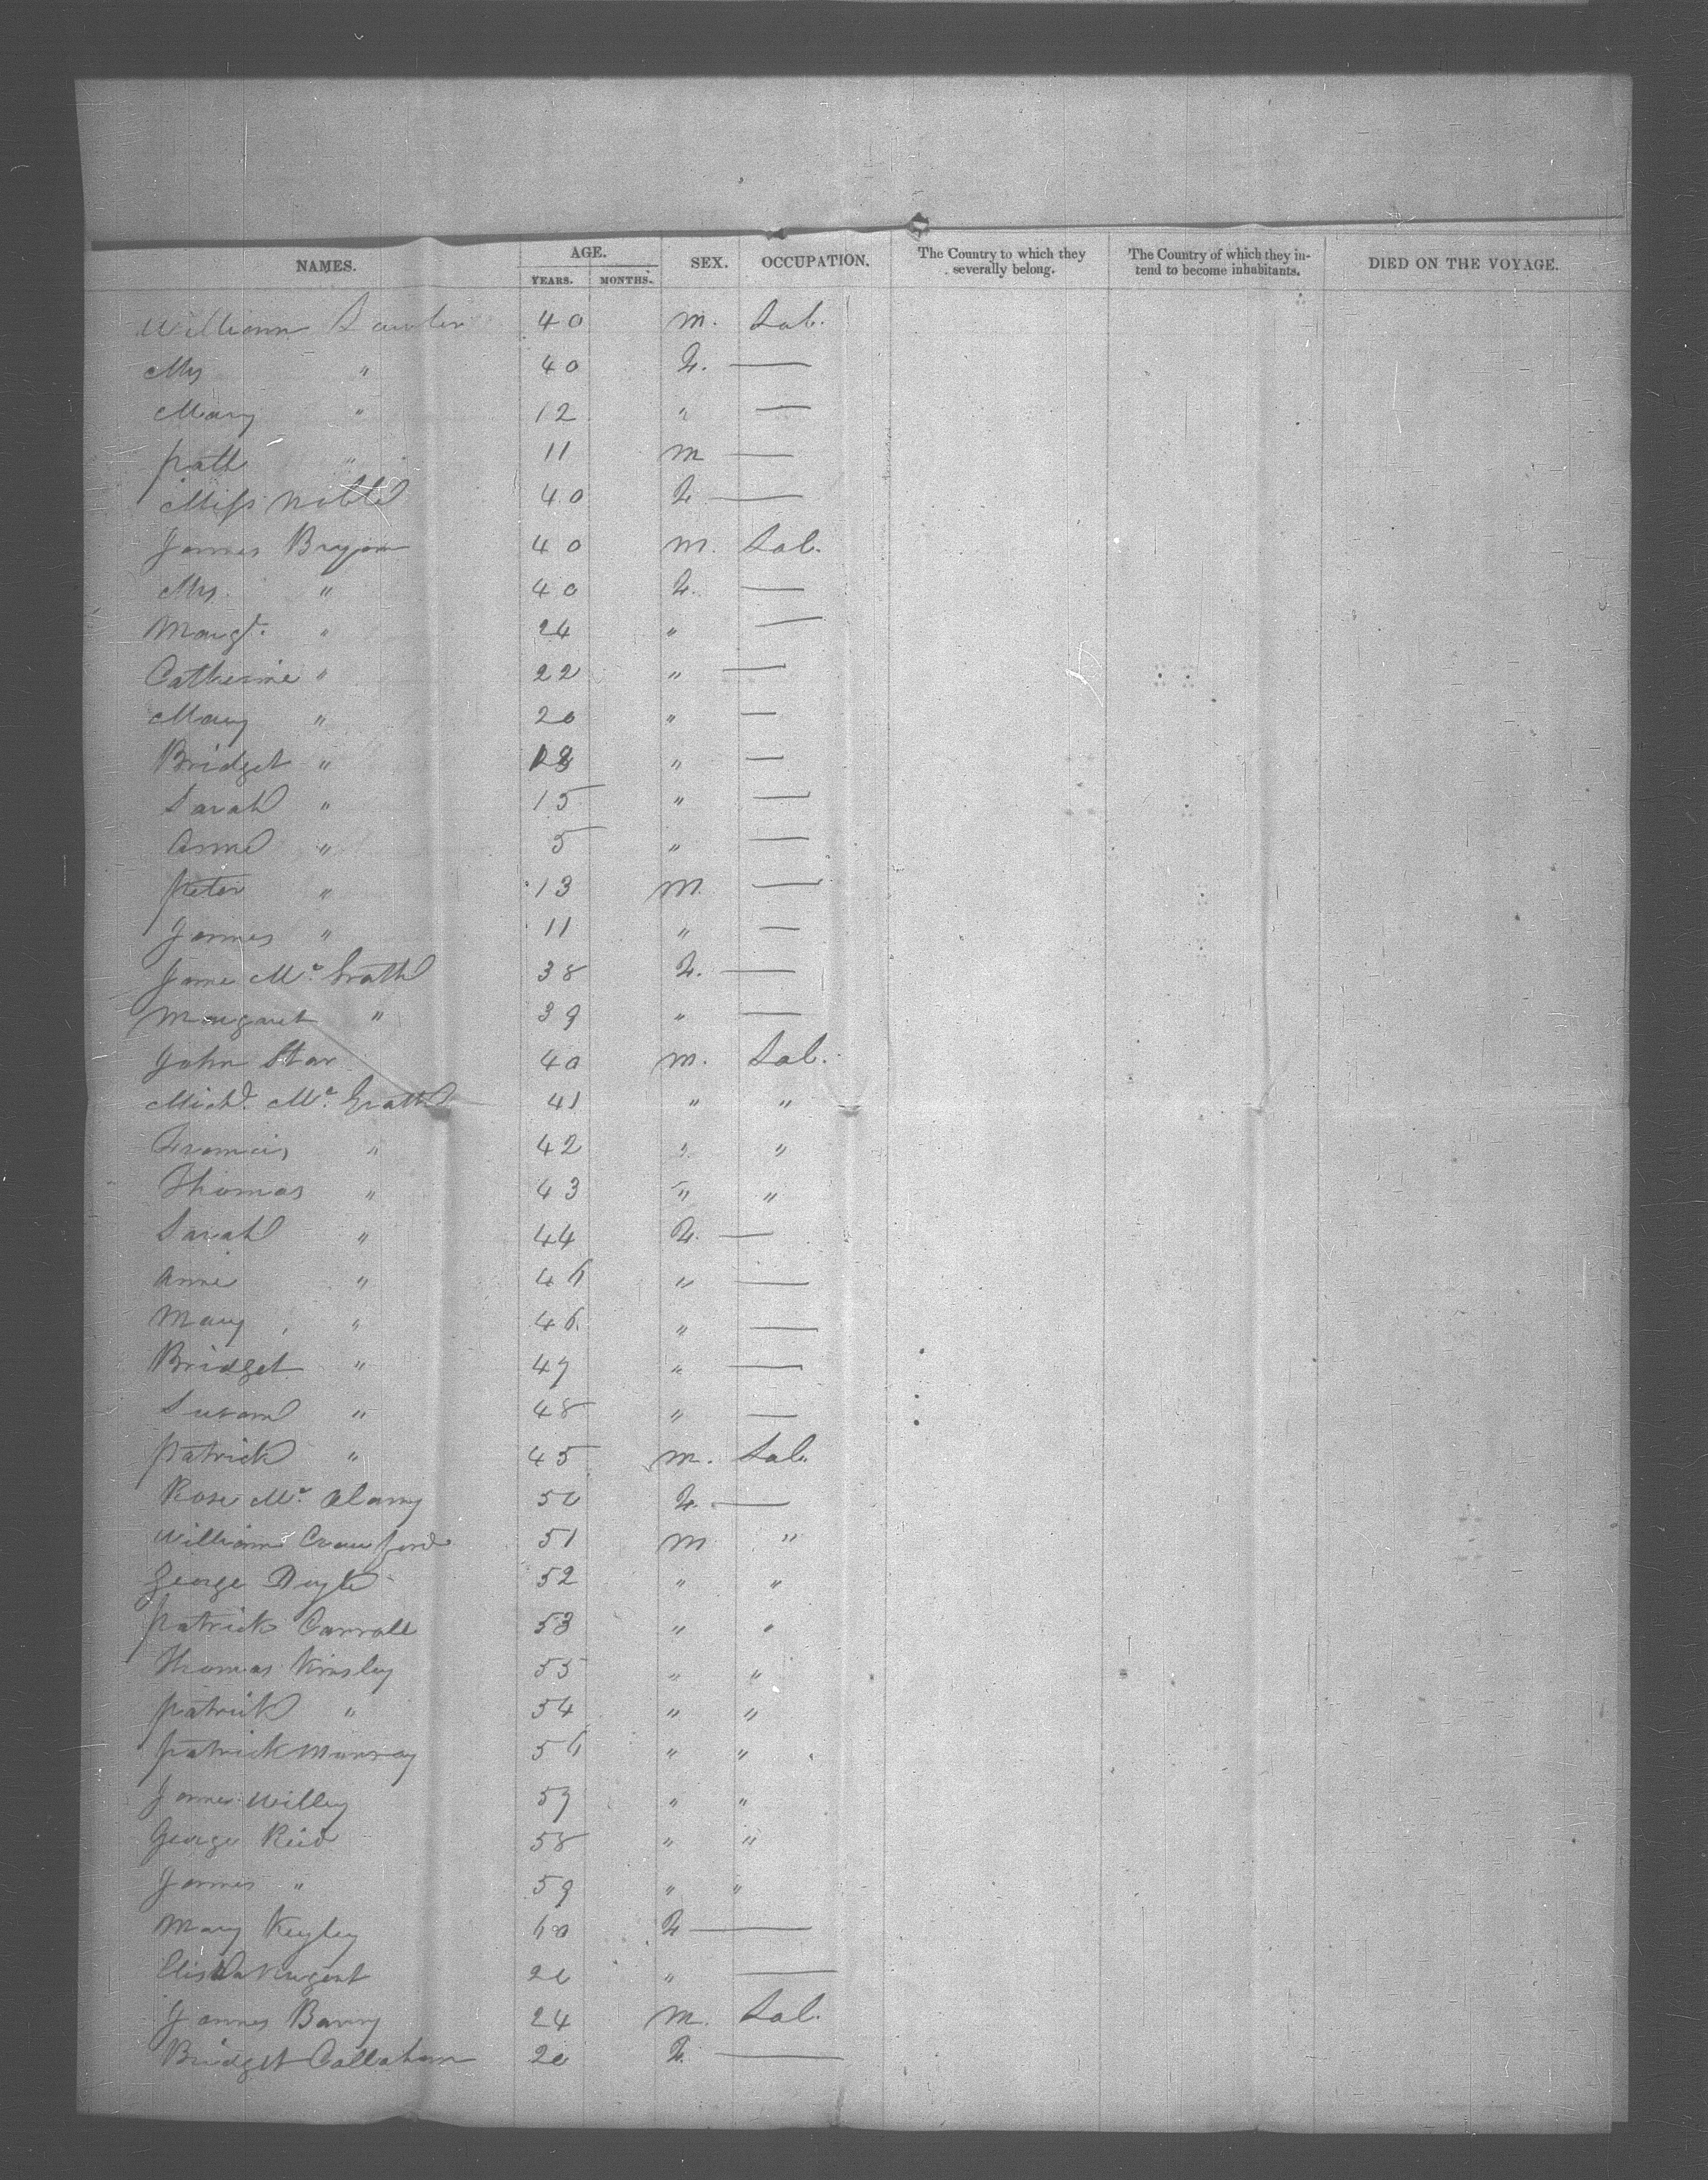 NAMES. AGE. YEARS. MONTHS. SEX. OCCUPATION. The Country to which they severally belong. The Country of which they intend to become inhabitants. DIED ON THE VOYAGE.
William Lawler 40 m. Lab.
Mrs " 40 F. —
Mary " 12 " —
Patk " 11 m —
Miss Noble 40 F —
James Bryan 40 m. Lab.
Mrs. " 40 F. —
Margt. " 24 " —
Catherine " 22 " —
Mary " 20 " —
Bridget " 18 " —
Sarah " 15 " —
Anne " 5 " —
Peter " 13 m. —
James " 11 " —
Jane Mc Grath 38 F. —
Margaret " 39 " —
John Star 40 m. Lab.
Michl. Mc Grath 41 " "
Francis " 42 " "
Thomas " 43 " "
Sarah " 44 F. —
Anne " 46 " —
Mary " 46 " —
Bridget " 47 " —
Susan " 48 " —
Patrick " 45 m. Lab.
Rose Mc 50 F. —
William Crawford 51 m "
George Doyle 52 " "
Patrick Carroll 53 " "
Thomas Kinsley 55 " "
Patrick " 54 " "
Patrick Murray 56 " "
James Willey 57 " "
George Reid 58 " "
James " 59 " "
Mary Keyley 60 F —
Nugent 20 " —
James Barry 24 m. Lab.
Bridget Callahan 20 F. —